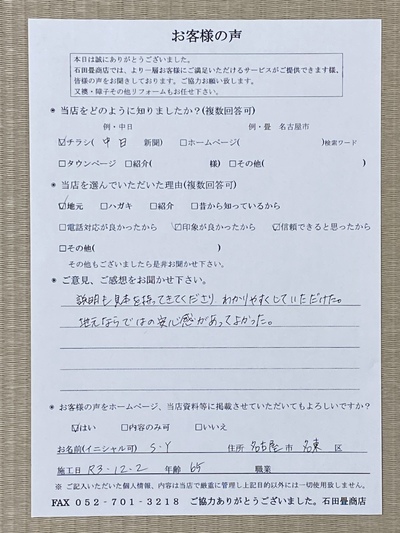 お客様の声
本日は誠にありがとうございました。
石田畳商店では、より一層お客様にご満足いただけるサービスがご提供できます様、
皆様の声をお聞きしております。ご協力お願い致します。
又襖・障子その他リフォームもお任せ下さい。
* 当店をどのように知りましたか?(複数回答可)
例・中日 例・畳 名古屋市
☑チラシ( 中日 新聞) □ホームページ( )検索ワード
□タウンページ □紹介( 様) □その他( )
* 当店を選んでいただいた理由(複数回答可)
☑地元 □ハガキ □紹介 □昔から知っているから
□電話対応が良かったから ☑印象が良かったから ☑信頼できると思ったから
□その他( )
その他もございましたら是非お聞かせ下さい。
* ご意見、ご感想をお聞かせ下さい。
説明も見本を持ってきてくださり わかりやすくしていただけた。
地元ならではの安心感があってよかった。
* お客様の声をホームページ、当店資料等に掲載させていただいてもよろしいですか?
☑はい □内容のみ可 □いいえ
お名前(イニシャル可) S・Y 住所 名古屋 市 名東 区
施工日 R3・12・2 年齢 65 職業
※ ご記入いただいた個人情報、内容は当店で厳重に管理し上記目的以外には一切使用致しません。
FAX 052-701-3218 ご協力ありがとうございました。石田畳商店